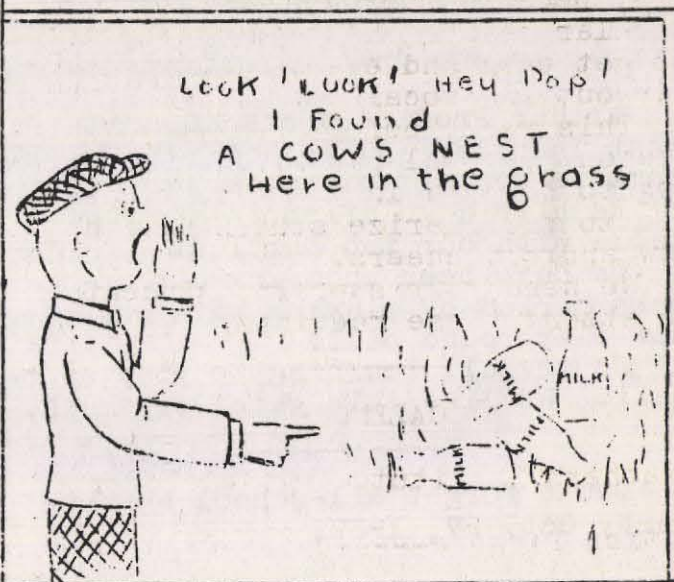 LOOK! LOOK! Hey Pop!
I Found
A COWS NEST
Here in the grass
MILK
MILK
MILK
MILK